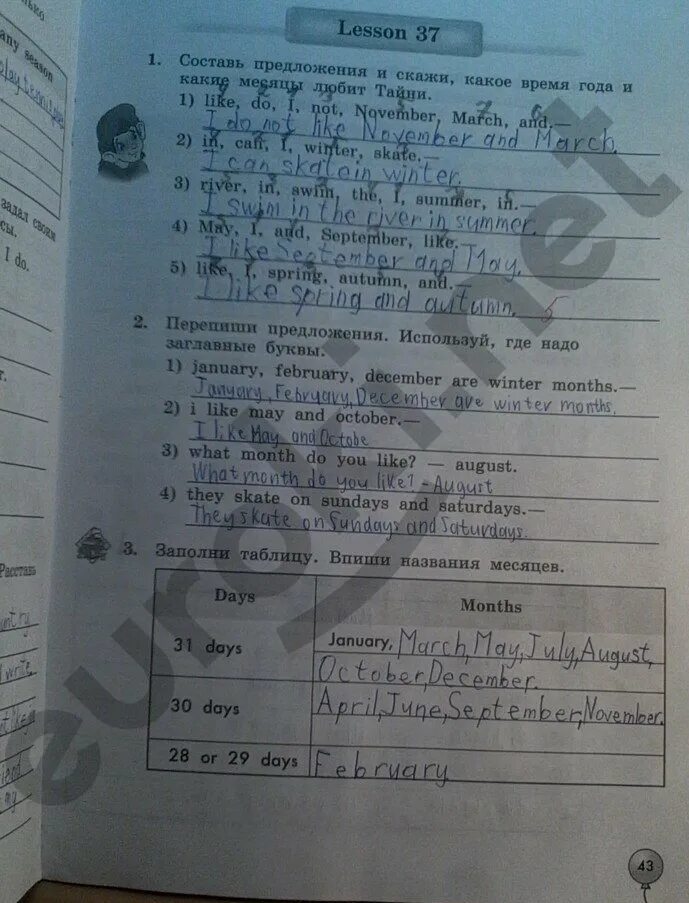 Lesson 37
any season
1. Составь предложения и скажи, какое время года и
какие месяцы любит Тайни.
1) like, do, I, not, November, March, and.—
I do not like November and March.
2) in, can, I, winter, skate.—
I can skate in winter.
3) river, in, swim, the, I, summer, in.—
I swim in the river in summer.
4) May, I, and, September, like.
I like September and May.
5) like, I, spring, autumn, and.—
I like spring and autumn. 5
задал своим
I do.
2. Перепиши предложения. Используй, где надо
заглавные буквы.
1) january, february, december are winter months.—
January, February, December are winter months.
2) i like may and october.—
I like May and Octobe
3) what month do you like? — august.
What month do you like? - August
4) they skate on sundays and saturdays.—
They skate on Sundays and Saturdays.
3. Заполни таблицу. Впиши названия месяцев.
Days Months
31 days January, March, May, July, August,
October, December.
30 days April, June, September, November.
28 or 29 days February
Расставь
write
my
43
euroki.net